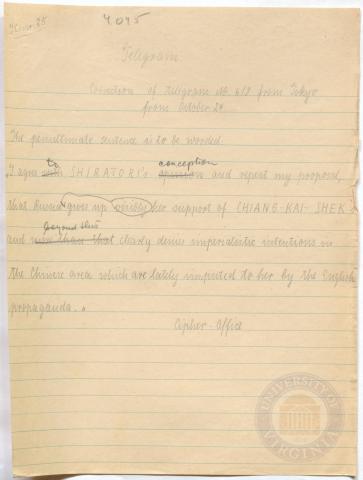 4045
Telegram
Correction of Telegram No. 618 from Tokyo
from October 24.
The penultimate sentence is to be worded:
to conception
I agree with SHIRATORI's opinion and repeat my proposal,
that Russia gives up visibly her support of CHIANG-KAI-SHEK
beyond this
and more than that clearly denies imperialistic intentions in
the Chinese area which are lately imputed to her by the English
propaganda."
Cipher-Office
UNIVERSITY OF VIRGINIA